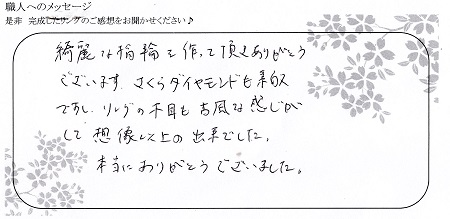 職人へのメッセージ
是非 完成したリングのご感想をお聞かせください♪
綺麗な指輪を作って頂きありがとう
ございます。さくらダイヤモンドも素敵
ですし、リングの木目も古風な感じが
して想像以上の出来でした。
本当にありがとうございました。